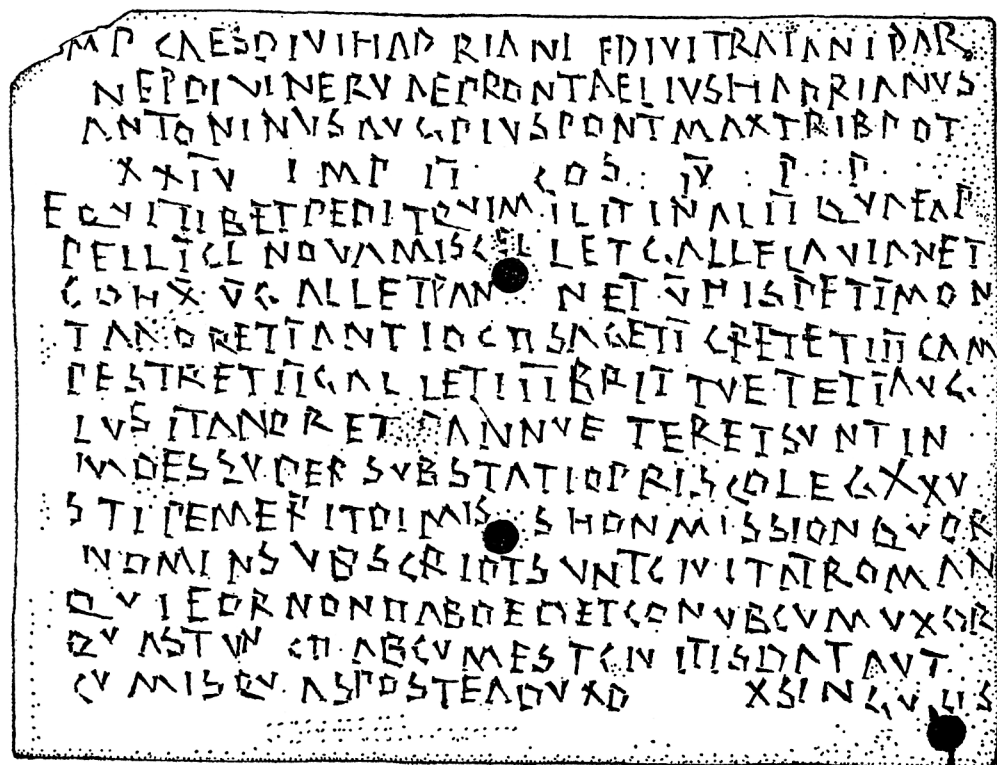 MP CAESDIVIHADRIANI FDIVITRAIANIPAR
NEPDIVINERVAEPRONTAELIUSHADRIANVS
ANTONINVSAVGPIVSPONTMAXTRIBPOT
XXIV IMP II COS IV P P
EQVITIBETPEDITQVIMILITINALIIIQVAEAP
PELLICL NOVAMISCELLETGALLFLAVIANET
COHX VG ALLETPAN NETVHISPETIMON
TANORETIANTIOCHSAGETICRETETIIICAM
PESTRETIIGALLETIIIBRIITTVETETIAVG
LVSITANORET PANNVETERETSVNTIN
MOESSVPERSVBSTATIOPRISCOLEGXXV
STIPEMERITDIMIS SHONMISSIONQVOR
NOMINSVBSCRIPTSVNTCIVITATROMAN
QVIEORNONHABDEDETCONVBCVMVXOR
QVASTVNCHABCVMESTCIVITISDATAVT
CVMISQVASPOSTEADVXO XSINGVLIS